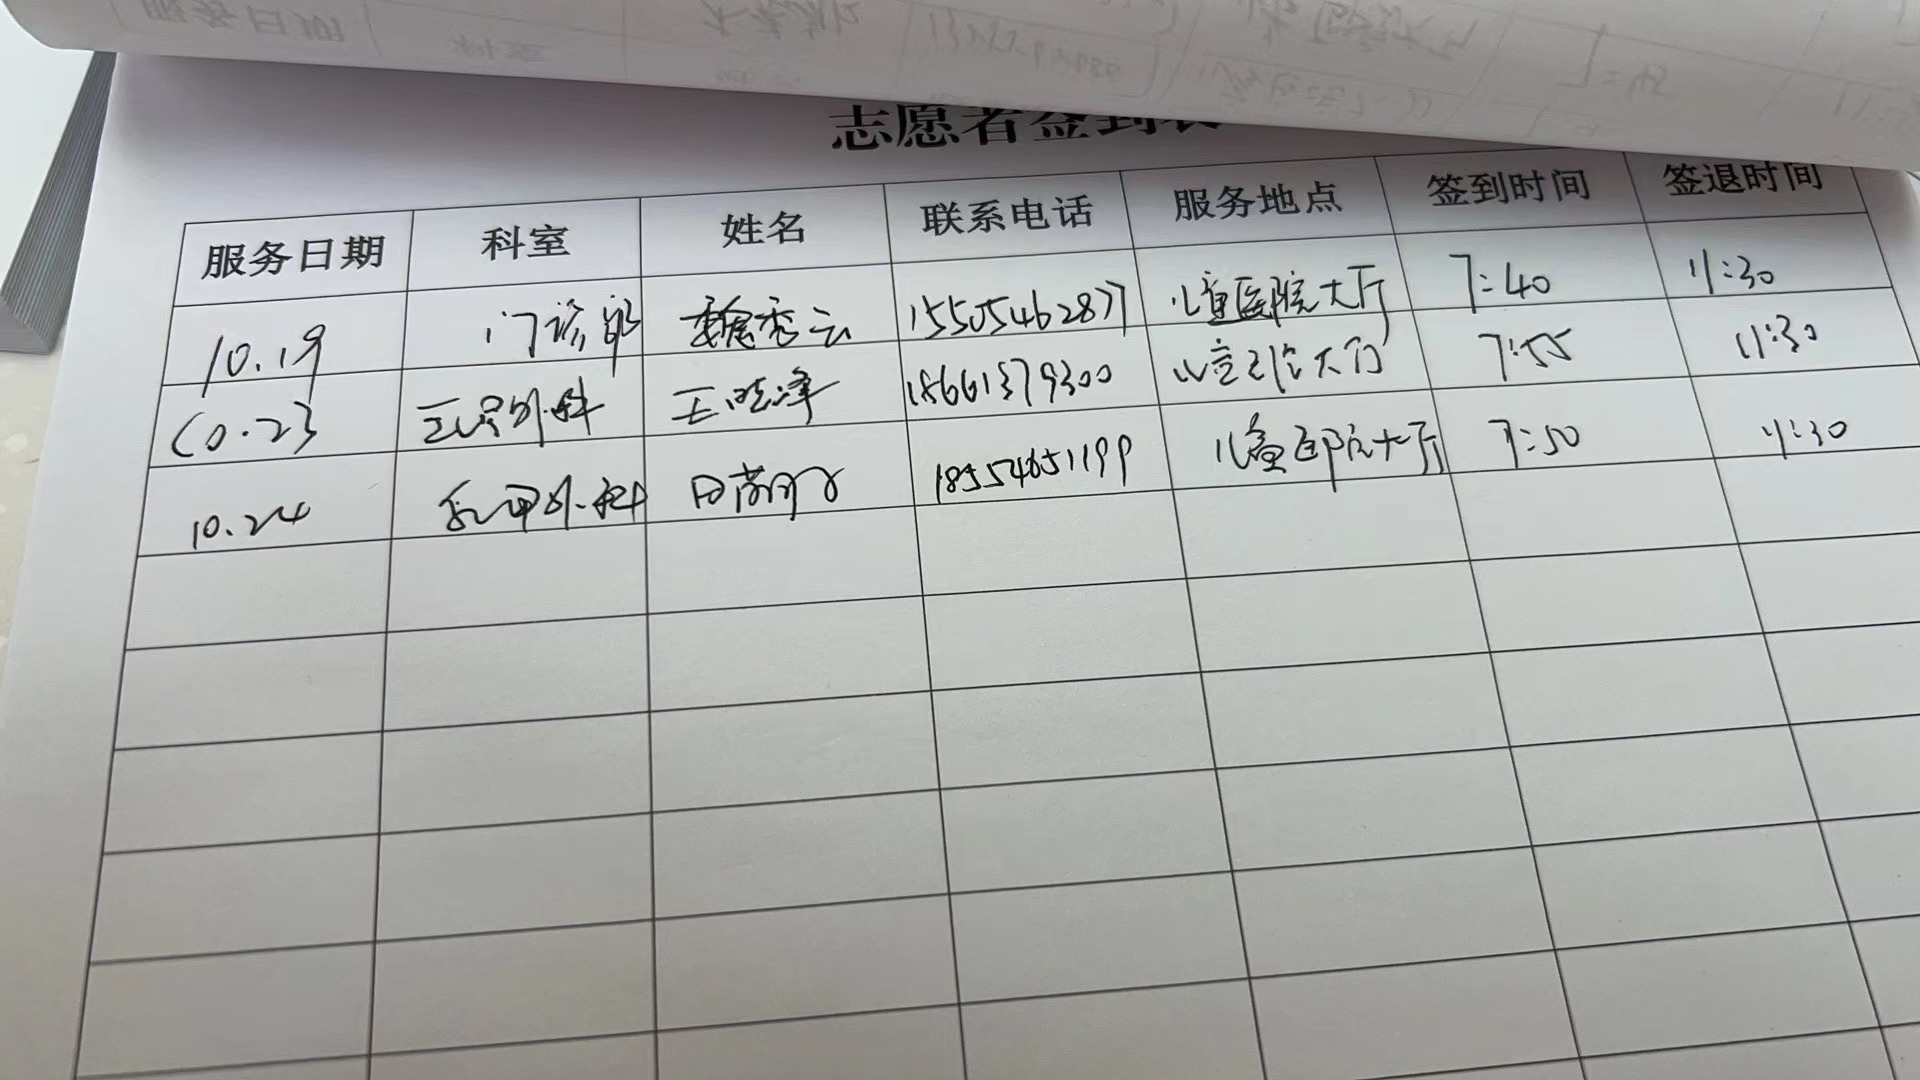 志愿者签到表
服务日期 科室 姓名 联系电话 服务地点 签到时间 签退时间
10.19 门诊部 魏秀云 15505462877 儿童医院大厅 7:40 11:30
10.23 外科 王晓泽 18661379300 儿童医院大厅 7:55 11:30
10.24 乳甲外科 田 18554651199 儿童医院大厅 7:50 11:30